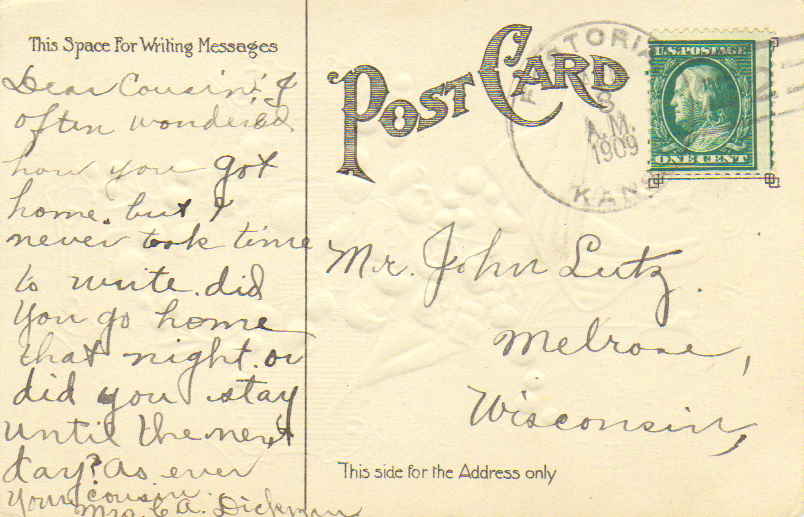 This Space For Writing Messages
Dear Cousin; I
often wondered
how you got
home. but I
never took time
to write. did
you go home
that night. or
did you stay
until the next
day? as ever
your cousin.
Mrs. C.A. Dickman
POST CARD
TORIA
8
A.M.
1909
KANS
U.S. POSTAGE
ONE CENT
Mr. John Lutz.
Melrose,
Wisconsin,
This side for the Address only